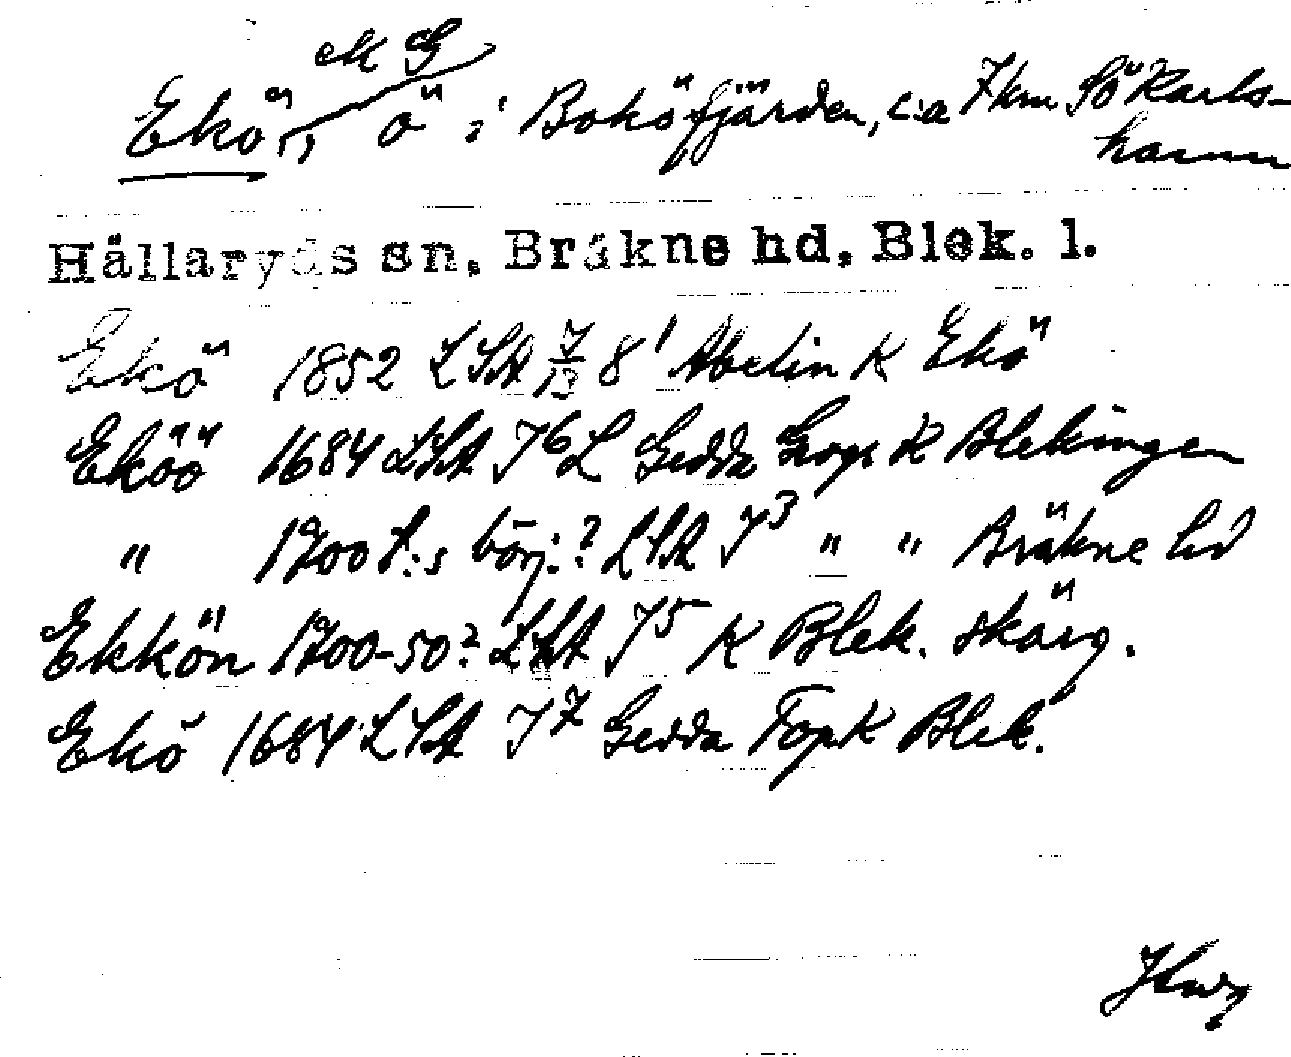 Ekö, ö i Boköfjärden, c:a 7 km SÖ Karls-
hamn
Hällaryds sn, Bräkne hd, Blek. l.
Ekö 1852 LSA 8 Abelin K Ekö
Eköö 1684 LSA J6 L Gedda K Blekingen
" 1700 t:s börj.? LSA J3 " " Bräkne hd
Ekkön 1700-50? LSA J5 K Blek. skärg.
Ekö 1684 LSA J7 Gedda TopK Blek.